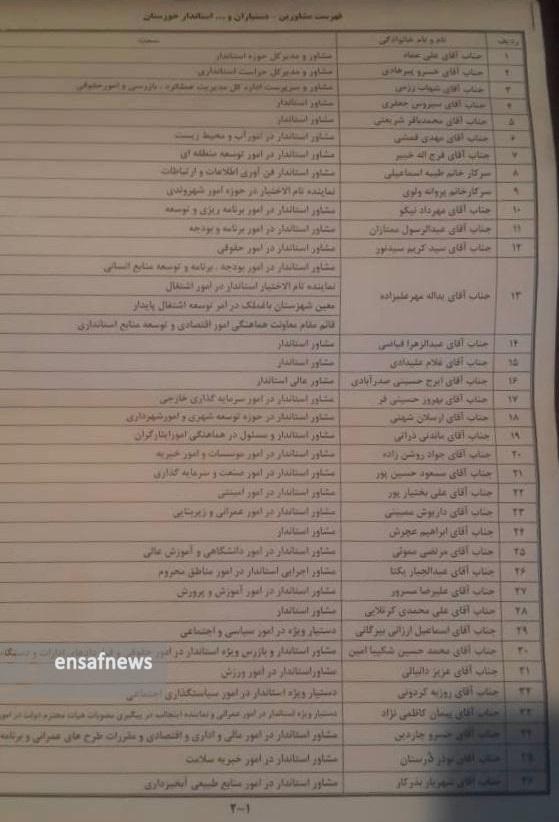 فهرست مشاورین - دستیاران و ... استاندار خوزستان
ردیف نام و نام خانوادگی سمت
۱ جناب آقای علی عماد مشاور و مدیرکل حوزه استاندار
۲ جناب آقای خسرو پیرهادی مشاور و مدیرکل حراست استانداری
۳ جناب آقای شهاب رزمی مشاور و سرپرست اداره کل مدیریت عملکرد ، بازرسی و امورحقوقی
۴ جناب آقای سیروس جعفری مشاور استاندار
۵ جناب آقای محمدباقر شریعتی مشاور استاندار
۶ جناب آقای مهدی قمشی مشاور استاندار در امور آب و محیط زیست
۷ جناب آقای فرج اله خبیر مشاور استاندار در امور توسعه منطقه ای
۸ سرکار خانم طیبه اسماعیلی مشاور استاندار فن آوری اطلاعات و ارتباطات
۹ سرکارخانم پروانه ولوی نماینده تام الاختیار در حوزه امور شهروندی
۱۰ جناب آقای مهرداد نیکو مشاور استاندار در امور برنامه ریزی و توسعه
۱۱ جناب آقای عبدالرسول ممتازان مشاور استاندار در امور برنامه و بودجه
۱۲ جناب آقای سید کریم سیدنور مشاور استاندار در امور حقوقی
۱۳ جناب آقای یداله مهرعلیزاده مشاور استاندار در امور بودجه ، برنامه و توسعه منابع انسانی
نماینده تام الاختیار استاندار در امور اشتغال
معین شهرستان باغملک در امر توسعه اشتغال پایدار
قائم مقام معاونت هماهنگی امور اقتصادی و توسعه منابع استانداری
۱۴ جناب آقای عبدالزهرا فیاضی مشاور استاندار
۱۵ جناب آقای غلام علیدادی مشاور استاندار
۱۶ جناب آقای ایرج حسینی صدرآبادی مشاور عالی استاندار
۱۷ جناب آقای بهروز حسینی فر مشاور استاندار در امور سرمایه گذاری خارجی
۱۸ جناب آقای ارسلان شهنی مشاور استاندار در حوزه توسعه شهری و امورشهرداری
۱۹ جناب آقای ماندنی ذراتی مشاور استاندار و مسئول در هماهنگی امورایثارگران
۲۰ جناب آقای جواد روشن زاده مشاور استاندار در امور موسسات و امور خیریه
۲۱ جناب آقای مسعود حسین پور مشاور استاندار در امور صنعت و سرمایه گذاری
۲۲ جناب آقای علی بختیار پور مشاور استاندار در امور امنیتی
۲۳ جناب آقای داریوش ممبینی مشاور استاندار در امور عمرانی و زیربنایی
۲۴ جناب آقای ابراهیم عچرش مشاور استاندار
۲۵ جناب آقای مرتضی مموئی مشاور استاندار در امور دانشگاهی و آموزش عالی
۲۶ جناب آقای عبدالجبار یکتا مشاور اجرایی استاندار در امور مناطق محروم
۲۷ جناب آقای علیرضا مسرور مشاور استاندار در امور آموزش و پرورش
۲۸ جناب آقای علی محمدی کربلایی مشاور استاندار
۲۹ جناب آقای اسماعیل ارزانی بیرگانی دستیار ویژه در امور سیاسی و اجتماعی
۳۰ جناب آقای محمد حسین شکیبا امین مشاور و بازرس ویژه استاندار در امور حقوقی و ادارات و
ensafnews
۳۱ جناب آقای عزیز دانیالی مشاوراستاندار در امور ورزش
۳۲ جناب آقای روزبه کردونی دستیار ویژه استاندار در امور سیاستگذاری اجتماعی
۳۳ جناب آقای پیمان کاظمی نژاد دستیار ویژه استاندار در امور عمرانی و نماینده اینجانب در پیگیری مصوبات هیات محترم دولت در امور
۳۴ جناب آقای خسرو چاردین مشاور استاندار در امور مالی و اداری و اقتصادی و مقررات طرح های عمرانی و برنامه
۳۵ جناب آقای نوذر درستان مشاور استاندار در امور خیریه سلامت
۳۶ جناب آقای شهریار بذرکار مشاور استاندار در امور منابع طبیعی آبخیزداری
۲-۱